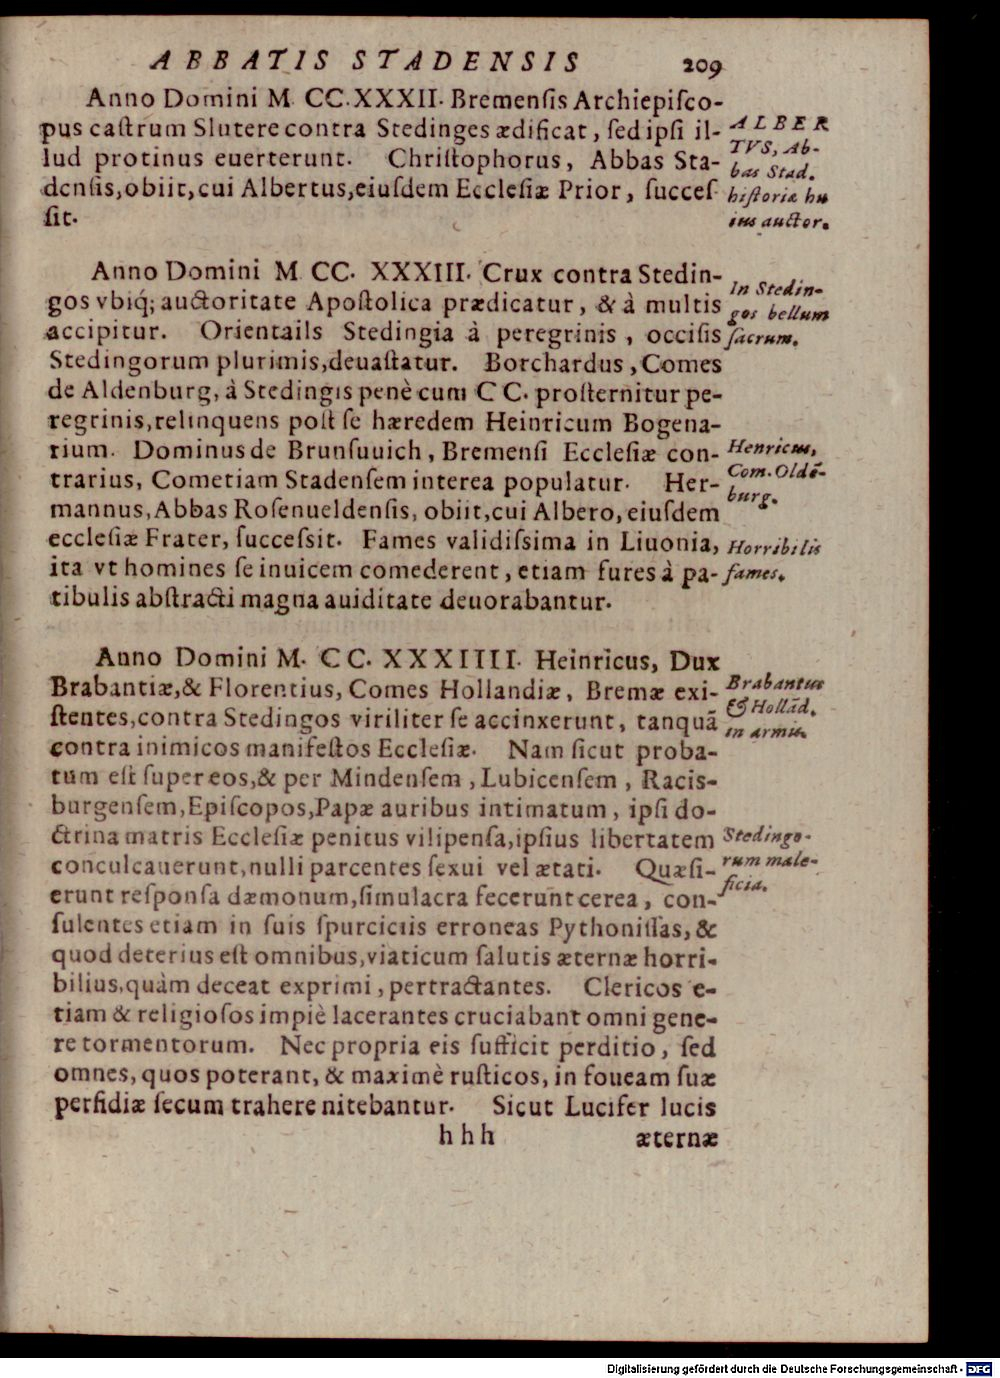 ABBATIS STADENSIS 209
Anno Domini M CC.XXXII. Bremenſis Archiepiſco-
pus caſtrum Slutere contra Stedinges ædificat, ſed ipſi il-
lud protinus euerterunt. Chriſtophorus, Abbas Sta-
denſis, obiit, cui Albertus, eiuſdem Eccleſiæ Prior, ſucceſ
ſit.
ALBER
TVS, Ab-
bas Stad.
hiſtoriæ hu
ius auctor.
Anno Domini M CC. XXXIII. Crux contra Stedin-
gos vbiq́; auctoritate Apoſtolica prædicatur, & à multis
accipitur. Orientails Stedingia à peregrinis, occiſis
Stedingorum plurimis, deuaſtatur. Borchardus, Comes
de Aldenburg, à Stedingis penè cum CC. proſternitur pe-
regrinis, relinquens poſt ſe hæredem Heinricum Bogena-
rium. Dominus de Brunſuuich, Bremenſi Eccleſiæ con-
trarius, Cometiam Stadenſem interea populatur. Her-
mannus, Abbas Roſenueldenſis, obiit, cui Albero, eiuſdem
eccleſiæ Frater, ſucceſsit. Fames validiſsima in Liuonia,
ita vt homines ſe inuicem comederent, etiam fures à pa-
tibulis abſtracti magna auiditate deuorabantur.
In Stedin-
gos bellum
ſacrum.
Henricus,
Com. Oldē-
burg.
Horribilis
fames.
Anno Domini M. CC. XXXIIII. Heinricus, Dux
Brabantiæ, & Florentius, Comes Hollandiæ, Bremæ exi-
ſtentes, contra Stedingos viriliter ſe accinxerunt, tanquā
contra inimicos manifeſtos Eccleſiæ. Nam ſicut proba-
tum eſt ſuper eos, & per Mindenſem, Lubicenſem, Racis-
burgenſem, Epiſcopos, Papæ auribus intimatum, ipſi do-
ctrina matris Eccleſiæ penitus vilipenſa, ipſius libertatem
conculcauerunt, nulli parcentes ſexui vel ætati. Quæſi-
erunt reſponſa dæmonum, ſimulacra fecerunt cerea, con-
ſulentes etiam in ſuis ſpurciciis erroneas Pythoniſſas, &
quod deterius eſt omnibus, viaticum ſalutis æternæ horri-
bilius, quàm deceat exprimi, pertractantes. Clericos e-
tiam & religioſos impiè lacerantes cruciabant omni gene-
re tormentorum. Nec propria eis ſufficit perditio, ſed
omnes, quos poterant, & maximè ruſticos, in foueam ſuæ
perfidiæ ſecum trahere nitebantur. Sicut Lucifer lucis
Brabantus
& Hollād.
in armis.
Stedingo-
rum male-
ficia.
hhh æternæ
Digitalisierung gefördert durch die Deutsche Forschungsgemeinschaft - DFG